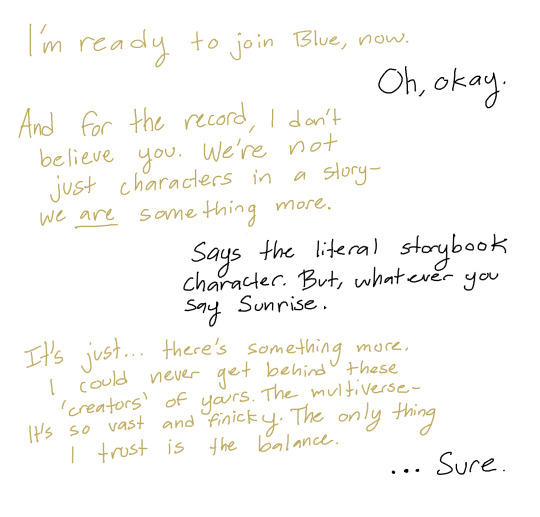 I'm ready to join Blue, now.
Oh, okay.
And for the record, I don't
believe you. We're not
just characters in a story-
we are something more.
Says the literal storybook
character. But, whatever you
say Sunrise.
It's just... there's something more.
I could never get behind these
'creators' of yours. The multiverse-
It's so vast and finicky. The only thing
I trust is the balance.
... Sure.